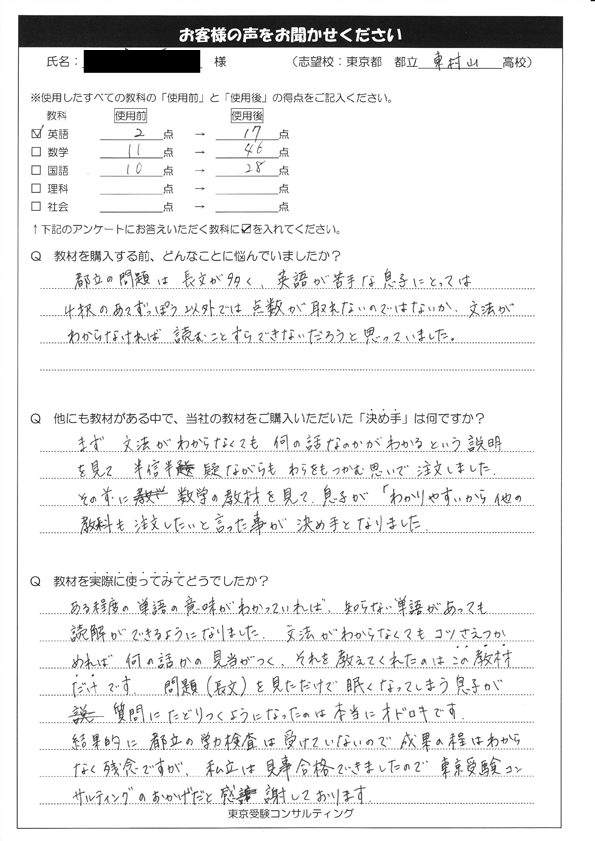 お客様の声をお聞かせください
氏名： 様 （志望校：東京都 都立 東村山 高校）
※使用したすべての教科の「使用前」と「使用後」の得点をご記入ください。
教科 使用前 使用後
☑ 英語 2 点 → 17 点
□ 数学 11 点 → 46 点
□ 国語 10 点 → 28 点
□ 理科 点 → 点
□ 社会 点 → 点
↑下記のアンケートにお答えいただく教科に☑を入れてください。
Q 教材を購入する前、どんなことに悩んでいましたか？
都立の問題は長文が多く、英語が苦手な息子にとっては
4択のあてずっぽう以外では点数が取れないのではないか、文法が
わからなければ読むことすらできないだろうと思っていました。
Q 他にも教材がある中で、当社の教材をご購入いただいた「決め手」は何ですか？
まず 文法がわからなくても 何の話なのかがわかるという説明
を見て 半信半疑ながらも わらをもつかむ思いで 注文しました。
その前に 数学の教材を見て、息子が「わかりやすいから他の
教科も注文したいと言った事が 決め手となりました。
Q 教材を実際に使ってみてどうでしたか？
ある程度の単語の意味がわかっていれば、知らない単語があっても
読解ができるようになりました。文法がわからなくても コツさえつか
めれば 何の話かの見当がつく、それを教えてくれたのはこの教材
だけです 問題（長文）を見ただけで眠くなってしまう息子が
質問にたどりつくようになったのは本当にオドロキです。
結果的に 都立の学力検査は受けていないので 成果の程はわから
なく残念ですが、私立は見事合格できましたので 東京受験コン
サルティングのおかげだと感謝しております。
東京受験コンサルティング